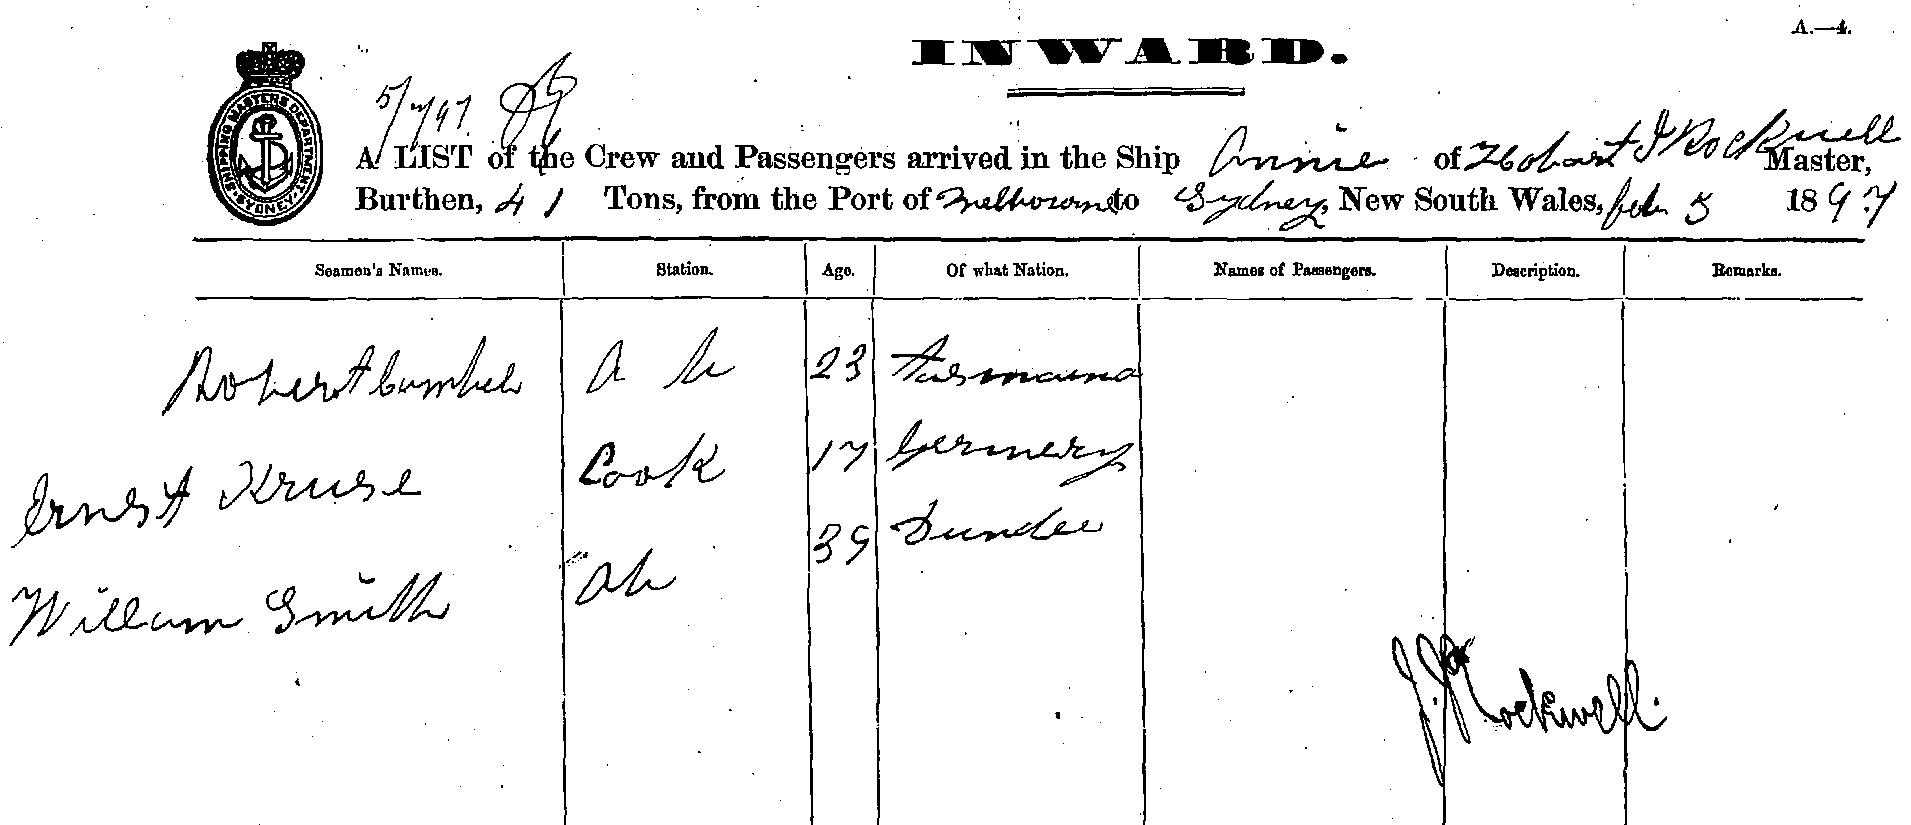 A.—4.
INWARD.
SHIPPING MASTERS DEPARTMENT SYDNEY
A LIST of the Crew and Passengers arrived in the Ship Annie of Hobart J Rockwell Master,
Burthen, 41 Tons, from the Port of Melbourne to Sydney, New South Wales, feb 5 1897
Seamen's Names. Station. Age. Of what Nation. Names of Passengers. Description. Remarks.
Robert 23 Tasmania
Ernest Kruse Cook 17 Germery
William Smith Ab 39 Dundee
Rockwell.